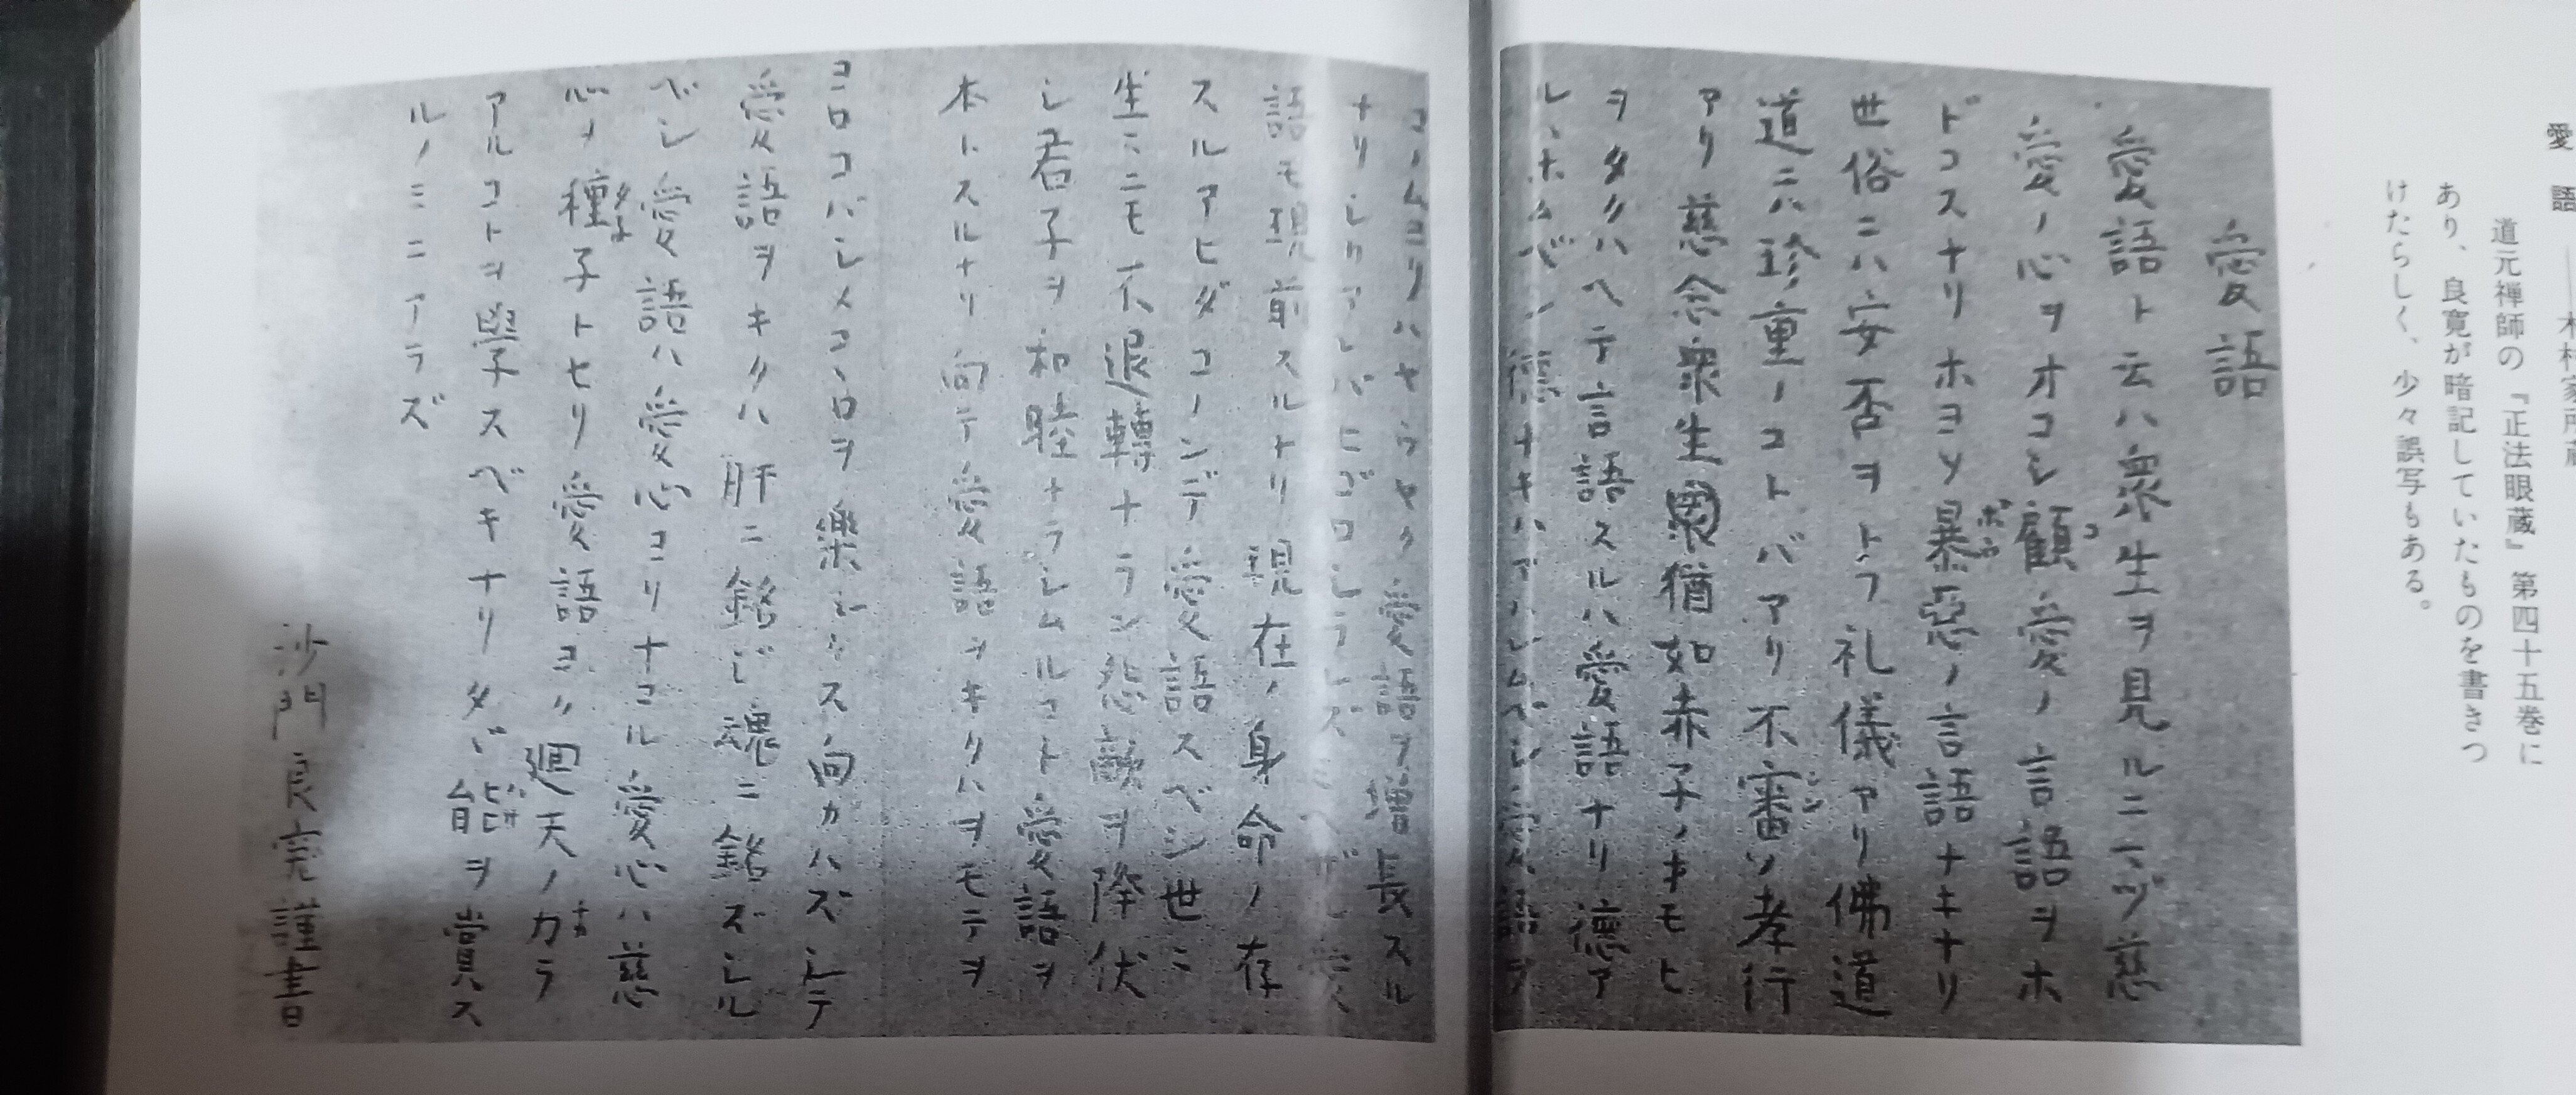 愛語
道元禅師の『正法眼蔵』第四十五巻に
あり、良寛が暗記していたものを書きつ
けたらしく、少々誤写もある。
愛語
愛語ト云ハ衆生ヲ見ルニマヅ慈
愛ノ心ヲオコシ顧愛ノ言語ヲホ
ドコスナリホヨソ暴惡ノ言語ナキナリ
世俗ニハ安否ヲトフ礼儀アリ佛道
道ニハ珍重ノコトバアリ不審ノ孝行
アリ慈念衆生猶如赤子ノオモヒ
ヲタクハヘテ言語スルハ愛語ナリ德ア
ルハホムベシ德ナキハアハレムベシ愛語ヲ
コノムヨリハヤウヤク愛語ヲ増長スル
ナリシカアレバヒゴロシラレズミヘザル愛
語モ現前スルナリ現在ノ身命ノ存
スルアヒダコノンデ愛語スベシ世ミ
生ミニモ不退轉ナラン怨敵ヲ降伏
シ君子ヲ和睦ナラシムルコト愛語ヲ
本トスルナリ向テ愛語ヲキクハヲモテヲ
ヨロコバシメコヽロヲ樂シクス向カハズシテ
愛語ヲキクハ肝ニ銘じ魂ニ銘ズシル
ベシ愛語ハ愛心ヨリオコル愛心ハ慈
心ノ種子トセリ愛語ヨク廻天ノカラ
アルコトヲ學スベキナリタヾ能ヲ賞ス
ルノミニアラズ
沙門良寛謹書